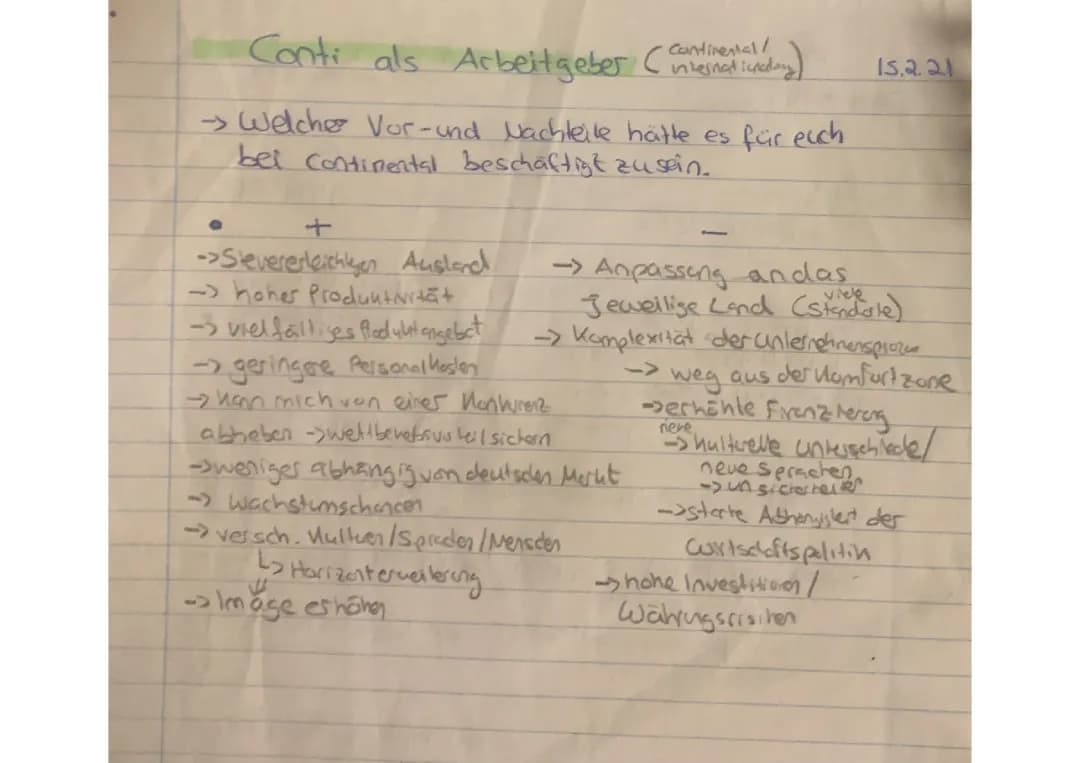 Conti als Arbeitgeber (Continental/
15.2.21
-> Welcher Vor-und Nachteile hätte es für euch
bei Continental beschäftigt zu sein.
+
-> Steuererleichtgen Ausland
-> hoher Produktivität
-> vielfältiges Produktangebot
-> geringere Personalkosten
-> kann mich von einer Konkurenz
abheben -> wettbewebsvorteil sichern
-> weniger abhängig von deutschen Markt
-> Wachstumschancen
-> versch. Kulturen/Sprachen/Menschen
↳ Horizonterweiterung
-> Image erhöhen
–
-> Anpassung an das
jeweilige Land (viele Standorte)
-> Komplexität der Unternehmensprozesse
-> weg aus der Komfortzone
-> erhöhte Finanzierung
-> neue kulturelle unterschiede/
neue Sprachen
-> unsicherheiten
-> starke Abhängigkeit der
Wirtschaftspolitik
-> hohe Investitionen/
Währungsrisiken